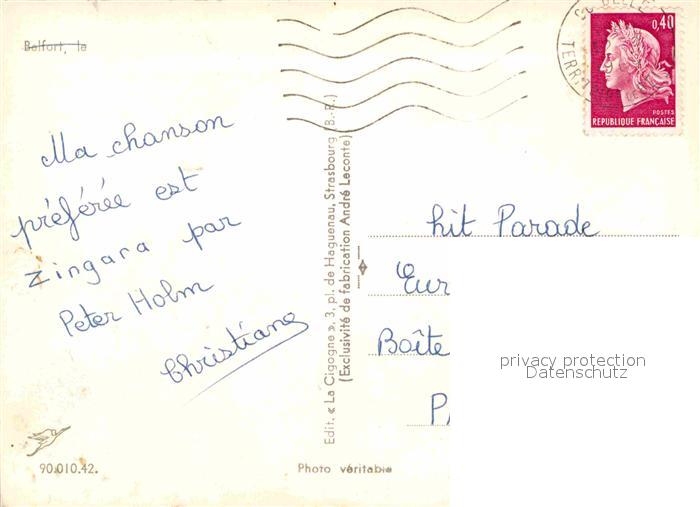 Belfort, le
Ma chanson
préférée est
zingara par
Peter Holm
Christiane
90.010.42.
Photo véritable
Edit. « La Cigogne », 3, pl. de Haguenau, Strasbourg (B.-R.)
(Exclusivité de fabrication André Leconte)
0,40
POSTES
REPUBLIQUE FRANÇAISE
hit Parade
Eur
Boîte
privacy protection
Datenschutz